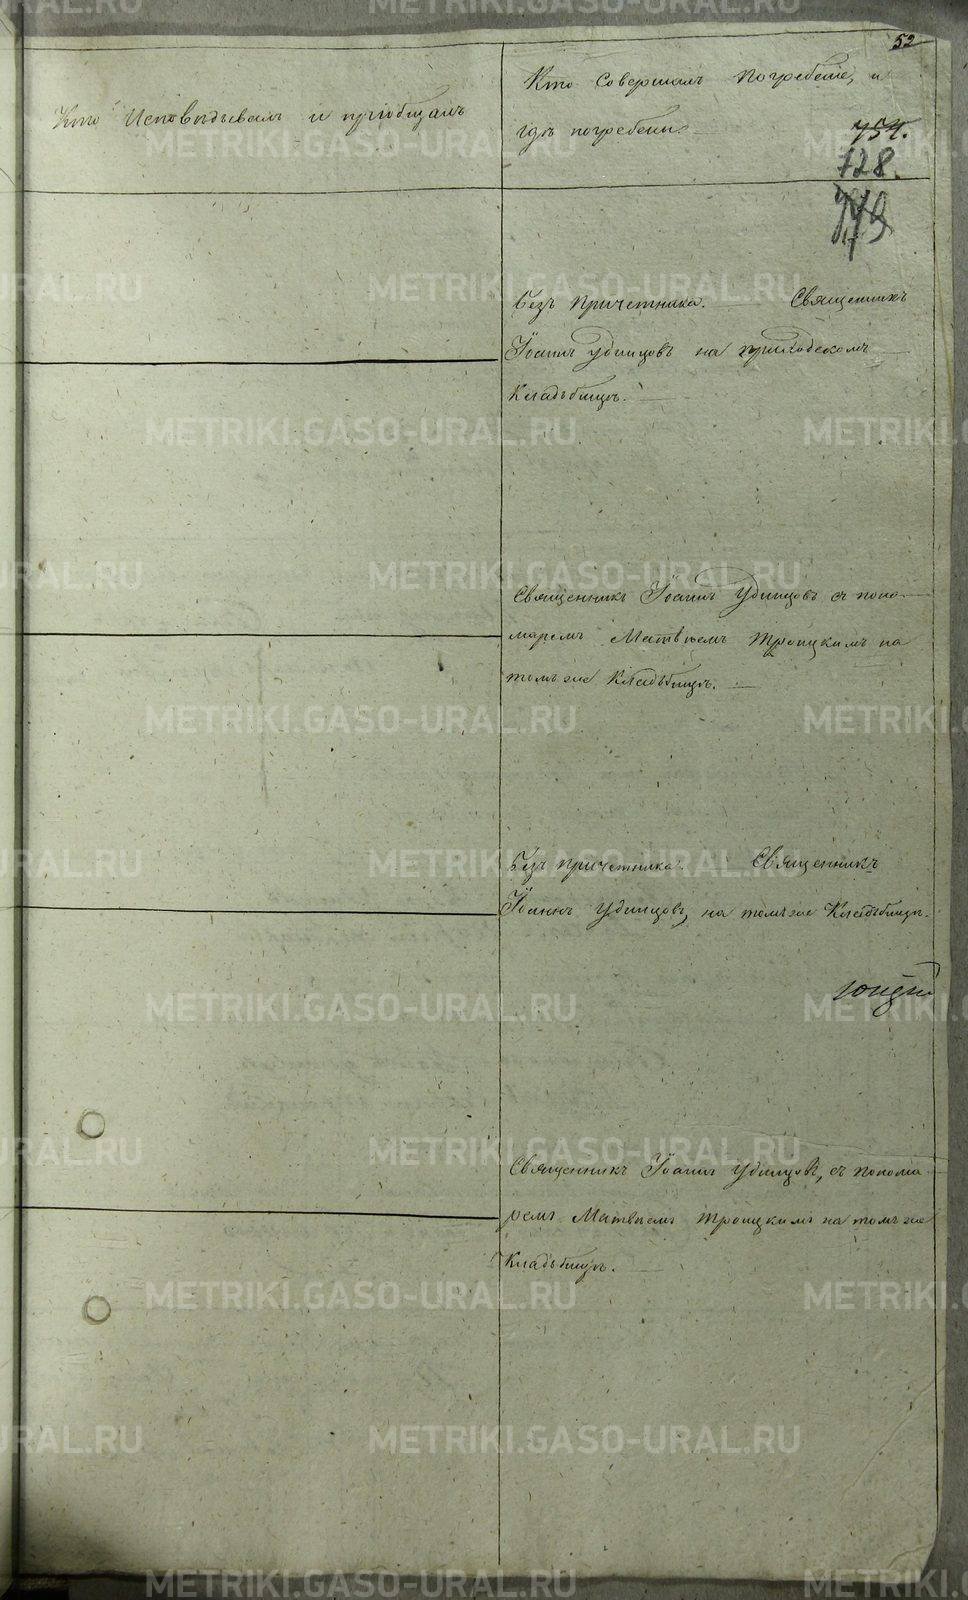 52
Кто Исповѣдывалъ и пріобщалъ
Кто совершалъ погребеніе, и
гдѣ погребены
754.
128.
Безъ причетника. Священникъ
Іоаннъ Удинцовъ на приходскомъ
кладьбищѣ.
Священникъ Іоаннъ Удинцовъ съ поно-
маремъ Матвѣемъ Троицкимъ на
томъ же кладьбищѣ.
Безъ причетника. Священникъ
Іоаннъ Удинцовъ, на томъ же кладьбищѣ.
Священникъ Іоаннъ Удинцовъ, съ понома
ремъ Матвѣемъ Троицкимъ на томъ же
кладьбищѣ.
METRIKI.GASO-URAL.RU